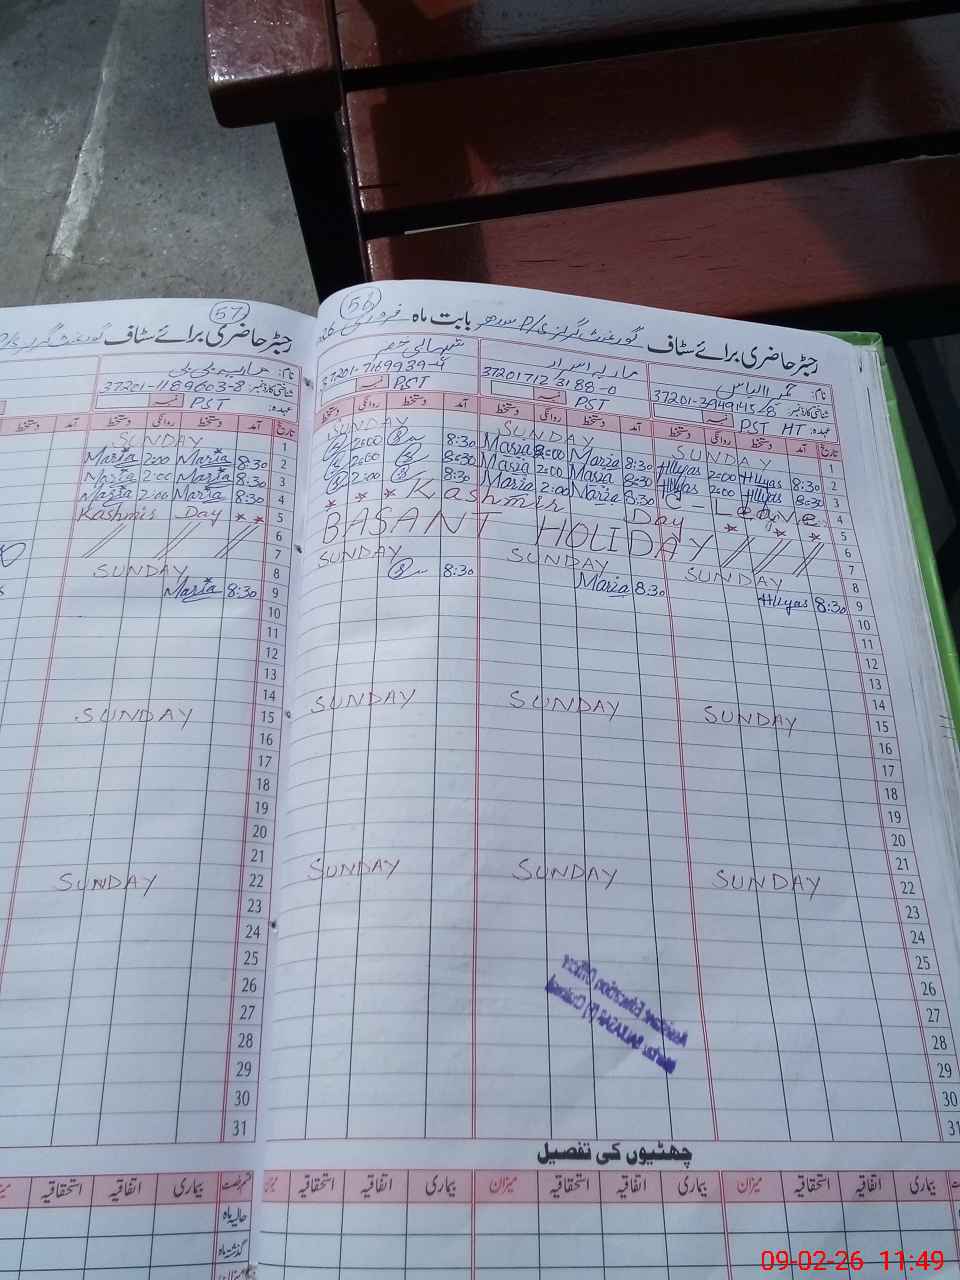 57
رجسٹر حاضری برائے سٹاف گورنمنٹ گرلز P/S
نام:
شناختی کارڈ نمبر 37201-1189603-8
عہدہ: PST
تاریخ آمد دستخط روانگی دستخط
1 SUNDAY
2 8:30 Maria 2:00 Maria
3 8:30 Maria 2:00 Maria
4 8:30 Maria 2:00 Maria
5 Kashmir Day **
6 // // //
7
8 SUNDAY
9 8:30 Maria
10
11
12
13
14
15 SUNDAY
16
17
18
19
20
21
22 SUNDAY
23
24
25
26
27
28
29
30
31
قسم رخصت بیماری اتفاقیہ استحقاقیہ میزان
حالیہ ماہ
گذشتہ ماہ
56
رجسٹر حاضری برائے سٹاف گورنمنٹ گرلز P/S بابت ماہ فروری
نام:
شناختی کارڈ نمبر 37201-2949145-8 37201712 3188-0 37201-7169939-4
عہدہ: PST HT PST PST
تاریخ آمد دستخط روانگی دستخط آمد دستخط روانگی دستخط آمد دستخط روانگی دستخط
1 SUNDAY SUNDAY SUNDAY
2 8:30 HIlyas 2:00 HIlyas 8:30 Maria 2:00 Maria 8:30 2:00
3 8:30 HIlyas 2:00 HIlyas 8:30 Maria 2:00 Maria 8:30 2:00
4 C-Leave 8:30 Maria 2:00 Maria 8:30 2:00
5 * * Kashmir Day * *
6 BASANT HOLIDAY // // //
7
8 SUNDAY SUNDAY SUNDAY
9 8:30 HIlyas 8:30 Maria 8:30
10
11
12
13
14
15 SUNDAY SUNDAY SUNDAY
16
17
18
19
20
21
22 SUNDAY SUNDAY SUNDAY
23
24
25
26
27
28
29
30
31
Assistant Education Officer
چھٹیوں کی تفصیل
بیماری اتفاقیہ استحقاقیہ میزان بیماری اتفاقیہ استحقاقیہ میزان بیماری اتفاقیہ استحقاقیہ میزان
09-02-26 11:49